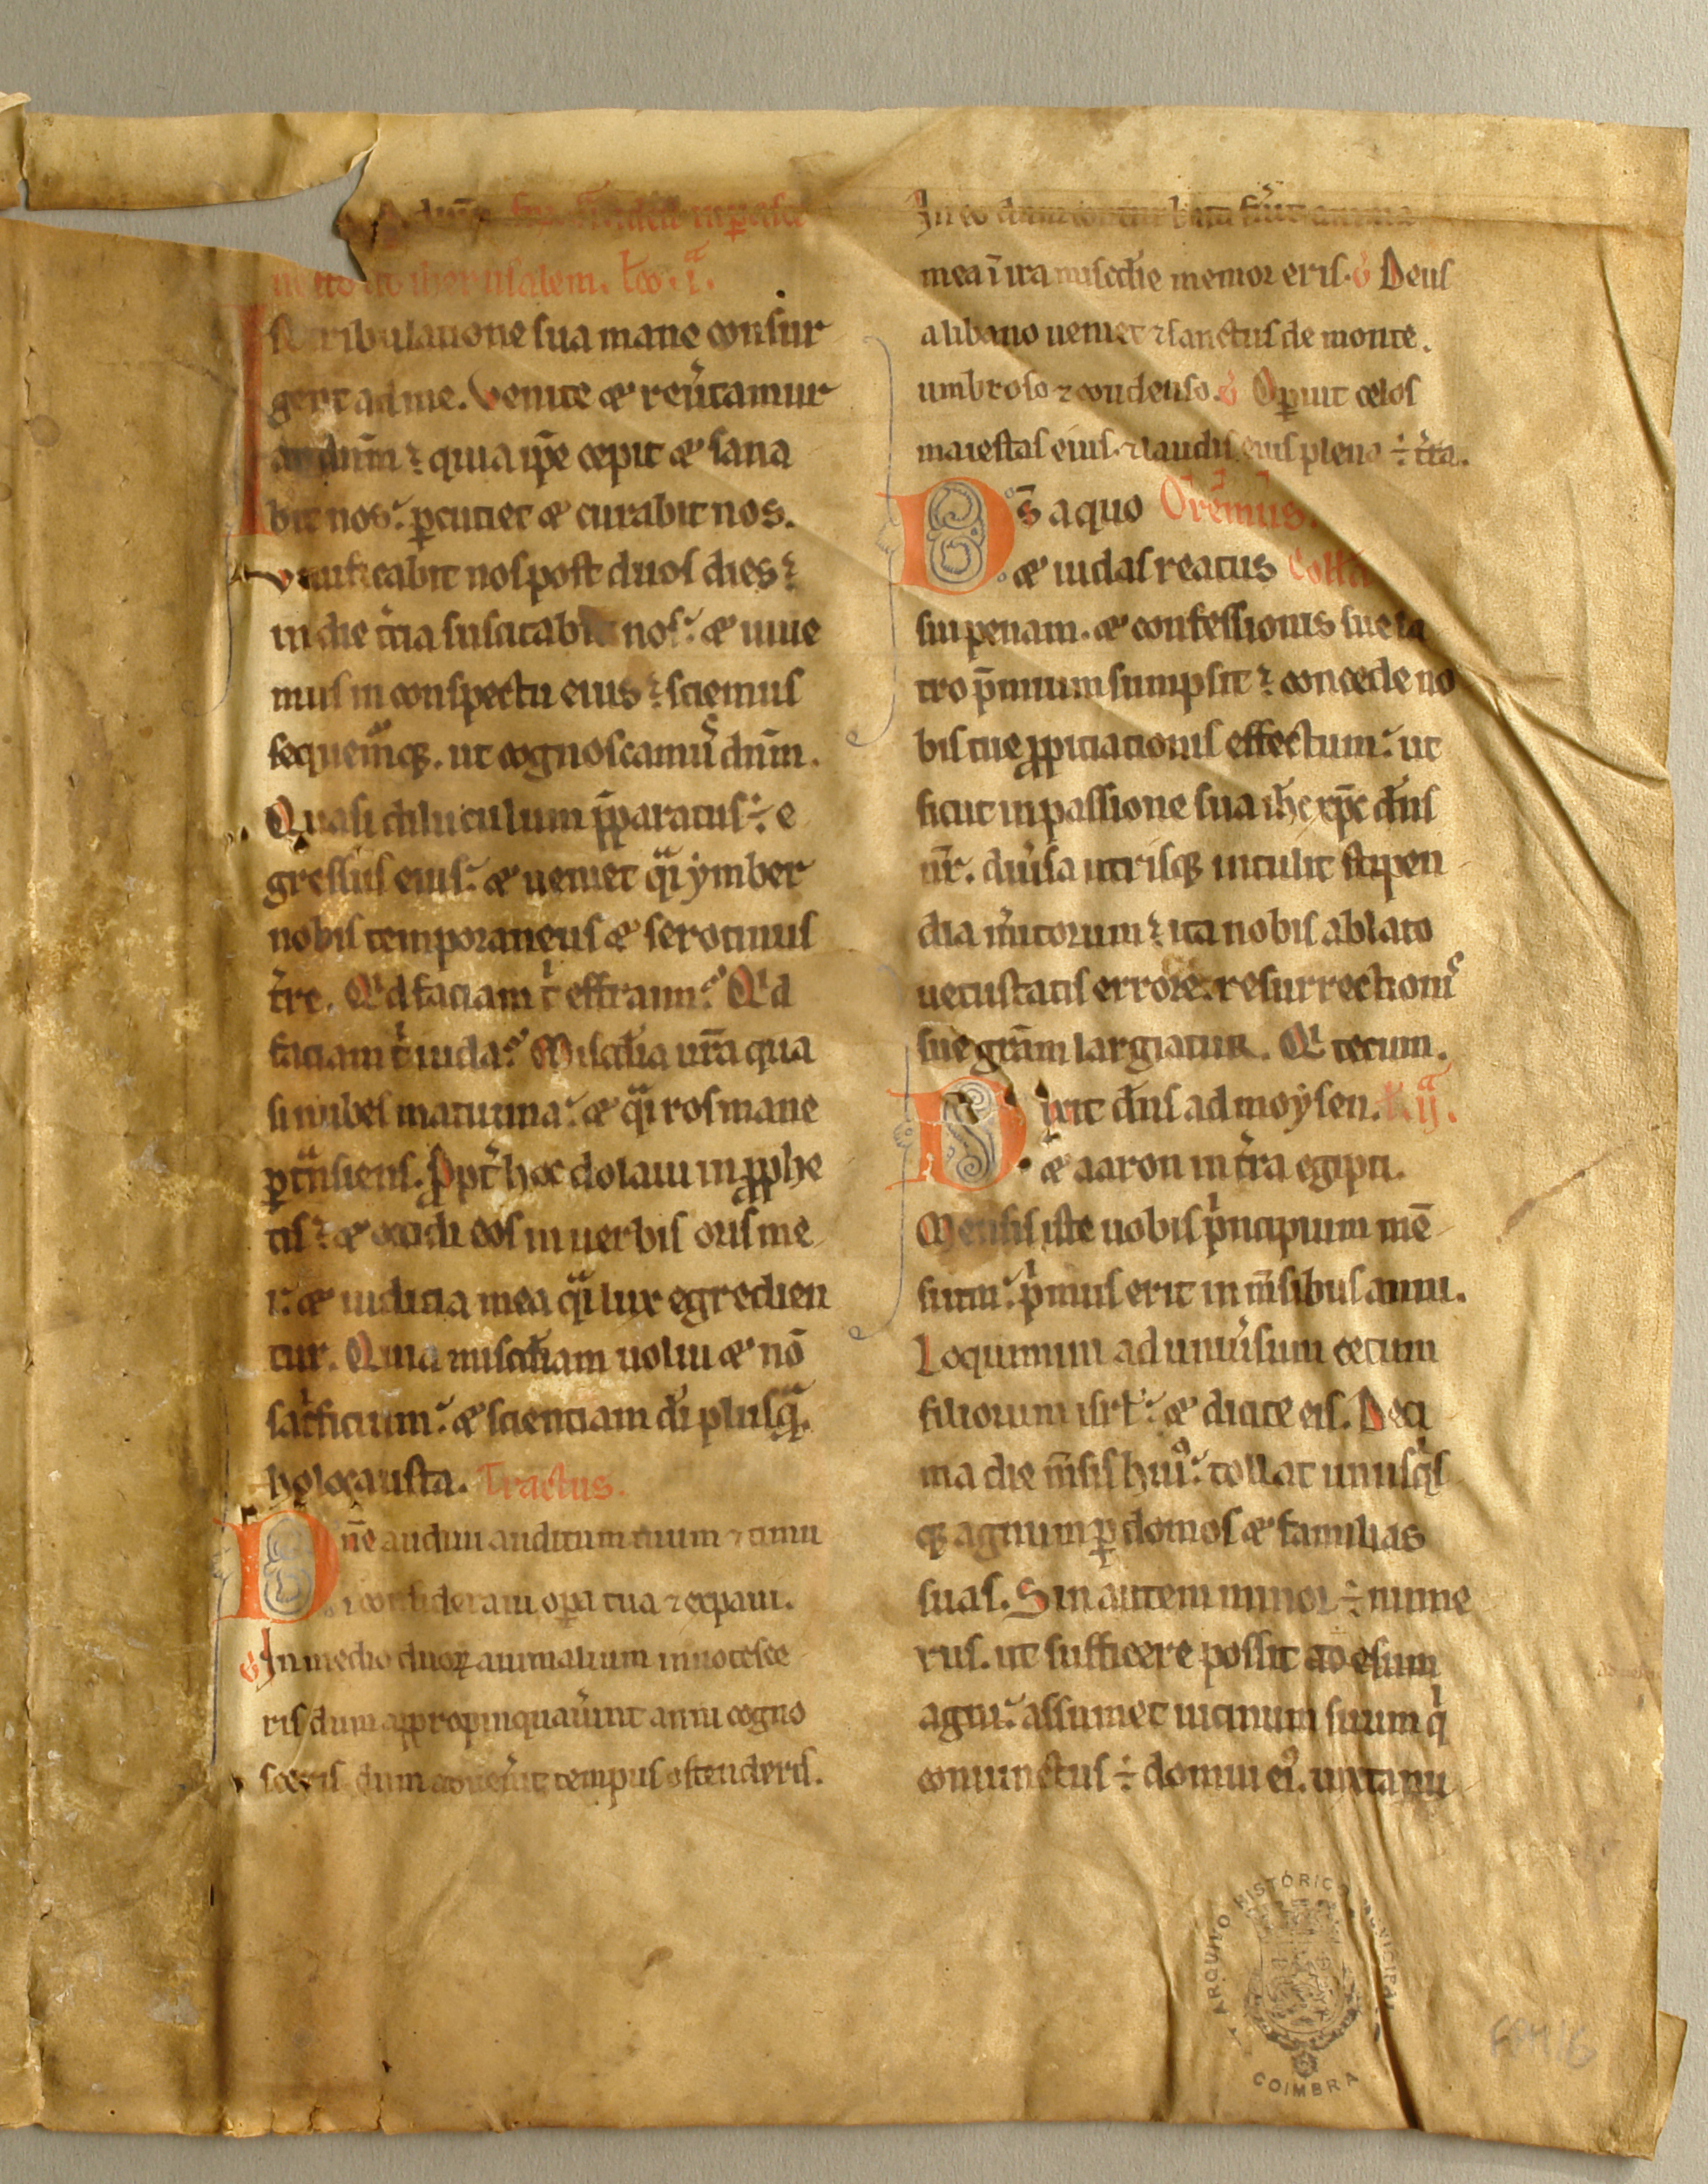 ad dn̄m
iherusalem. Lc̄o .iª.
In tribulatione sua mane consur
gent ad me. Venite & reu̓tamur
ad dn̄m ⁊ quia ip̄e cepit & sana
bit nos: ꝑcutiet & curabit nos.
Viuificabit nos post duos dies:
in die t̓cia suscitabit nos: & uiue
mus in conspectu eius: sciemus
sequem̓qꝫ. ut cognoscamus dn̄m.
Quasi diluculum p̄paratus ÷ e
gressus eius: & ueniet qᷓi ymber
nobis temporaneus & serotinus
t̓re. Qͥd faciam tͥ effraim: Qͥd
faciam tͥ iuda: Misc̄dia ur̄a qua
si nubes matutina: & qᷓi ros mane
ꝑtᷓnsiens. Ꝓpt̓ hoc dolaui in ꝓphe
tis: & occidi eos in uerbis oris me
i: & iudicia mea qᷓi lux egredien
tur. Quia misc̄diam uolui & nō
sac̓ficium: & scientiam di̓ plusqᷓ
holocausta. Tractus.
Dn̄e audiui auditum tuum ⁊ timu
i consideraui oꝑa tua ⁊ expaui.
℣ In medio duoꝝ animalium innotesce
ris dum appropinquau̓int anni cogno
sceris dum aduen̓it tempus ostenderis.
In eo dum conturbata fu̓it anima
mea ī ira misc̄die memor eris. ℣ Deus
a libano ueniet ⁊ sanctus de monte.
umbroso ⁊ condenso. ℣ Oꝑuit celos
maiestas eius. ⁊ laudis eius plena ÷ t̓ra.
Ds̄ a quo Orem̄us.
& iudas reatus Coll̄a
sui penam. & confessionis sue la
tro p̄mium sumpsit: concede no
bis tue ꝓpiciationis effectum: ut
sicut in passione sua ih̄c xp̄c dn̄s
nr̄. diu̓sa utrisqꝫ intulit stipen
dia m̓itorum: ita nobis ablato
uetustatis errore. resurrectionis
sue gr̄am largiatur. Qͥ tecum.
Dixit dn̄s ad moysen. L. ijª.
& aaron in t̓ra egipti.
Mensis iste uobis pͥncipium mē
sium: pͥmus erit in m̄sibus anni.
Loquimini ad uniu̓sum cetum
filiorum isrł: & dicite eis. Deci
ma die m̄sis huiꝰ: tollat unusqͥs
qꝫ agnum ꝑ domos & familias
suas. Sin autem minor ÷ nume
rus. ut sufficere possit ad esum
agni: assumet uicinum suum qͥ
coniunctus ÷ domui eiꝰ. iuxta nu
ARQUIVO HISTÓRICO MUNICIPAL
COIMBRA